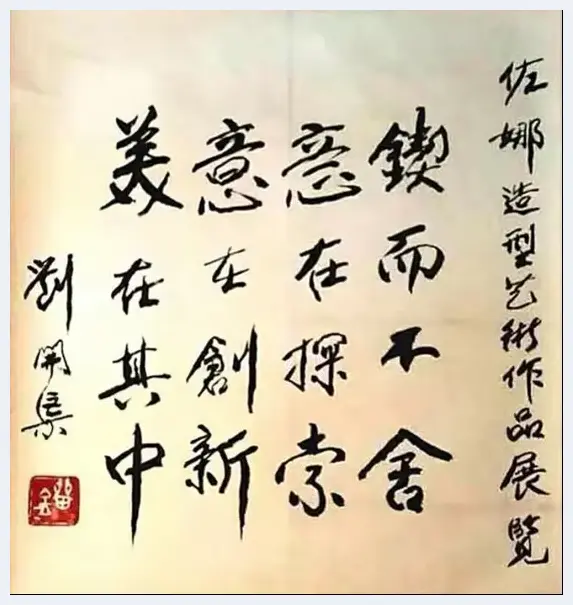 佐娜造型艺術作品展覽
鍥而不舍
意在探索
意在創新
美在其中
劉開渠